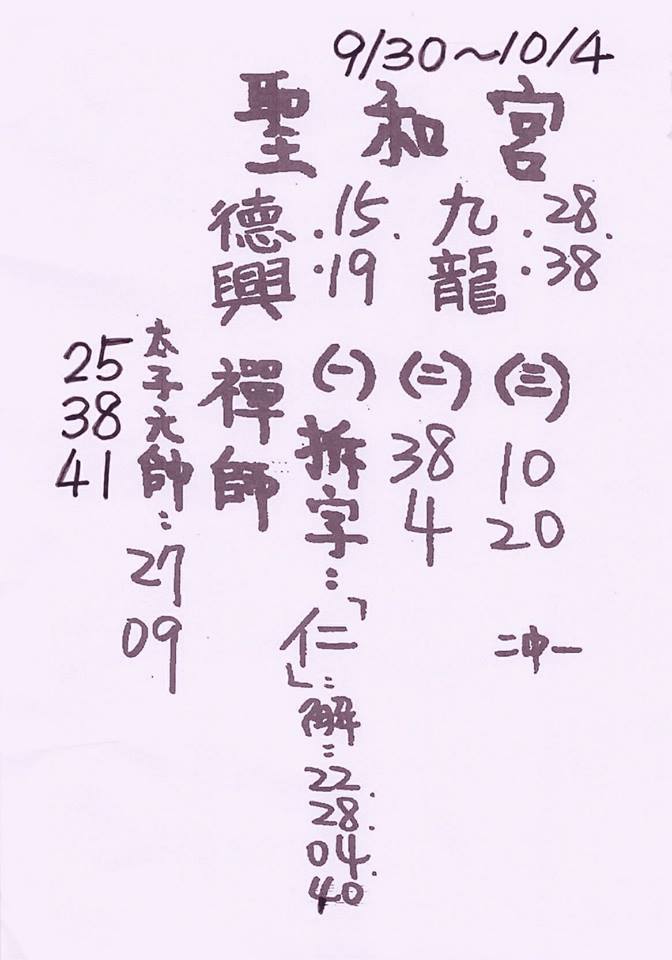 9/30~10/4
聖和宮
九龍 .28.
.38
德興 .15.
.19
禪師
(一) 拆字:「仁」:解:
22.
28.
04.
40
(二)
38
4
(三)
10
20
二中一
太子元帥:
27
09
25
38
41